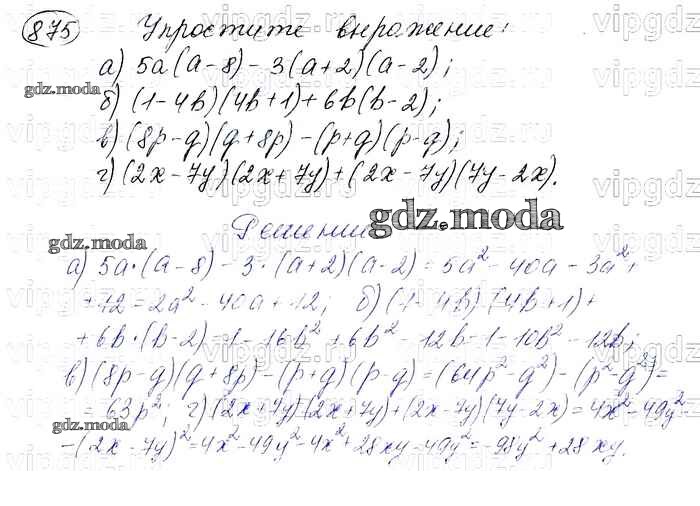 875 Упростите выражение:
а) 5a(a-8)-3(a+2)(a-2);
gdz.moda
б) (1-4b)(4b+1)+6b(b-2);
в) (8p-q)(q+8p)-(p+q)(p-q);
г) (2x-7y)(2x+7y)+(2x-7y)(7y-2x).
gdz.moda
Решение
gdz.moda
а) 5a·(a-8)-3·(a+2)(a-2)=5a²-40a-3a²+
+12=2a²-40a+12; б) (1-4b)(4b+1)+
+6b·(b-2)=1-16b²+6b²-12b=1-10b²-12b;
в) (8p-q)(q+8p)-(p+q)(p-q)=(64p²-q²)-(p²-q²)=
=63p²; г) (2x+7y)(2x+7y)+(2x-7y)(7y-2x)=4x²-49y²-
gdz.moda
-(2x-7y)²=4x²-49y²-4x²+28xy-49y²=-98y²+28xy.
vipgdz